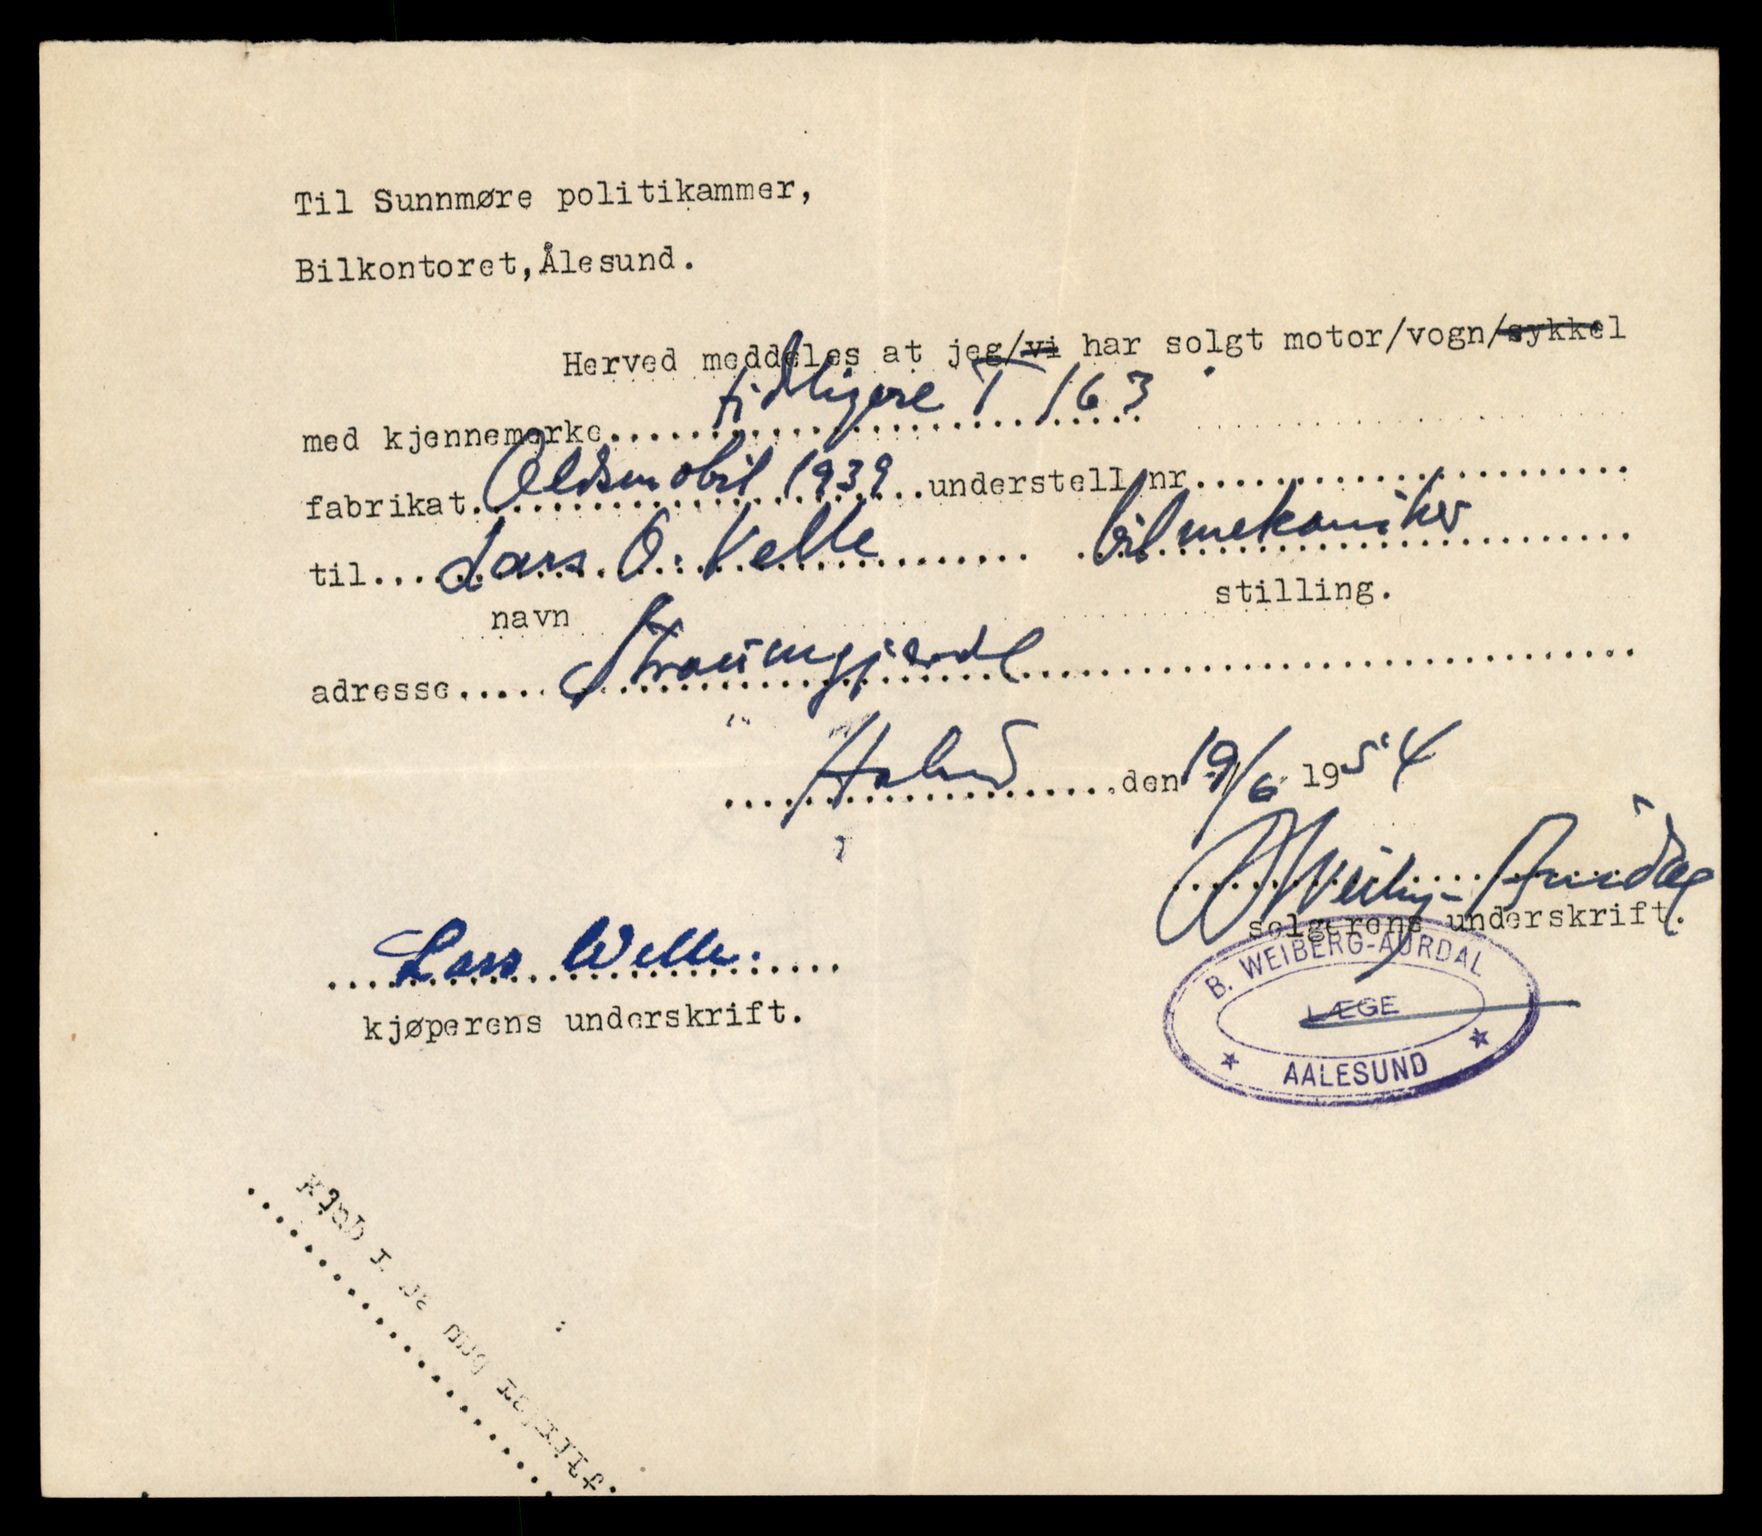 Til Sunnmøre politikammer,
Bilkontoret,Ålesund.
Herved meddeles at jeg/vi har solgt motor/vogn/sykkel
med kjennemerke tidligere T 163
fabrikat Oldsmobil 1939 understell nr
til Lars O. Velle bilmekaniker
navn stilling.
adresse Straumgjerde
den 19/6 1954
Weiberg-Aurdal
selgerens underskrift.
Lars Welle.
kjøperens underskrift.
B. WEIBERG-AURDAL
LÆGE
AALESUND